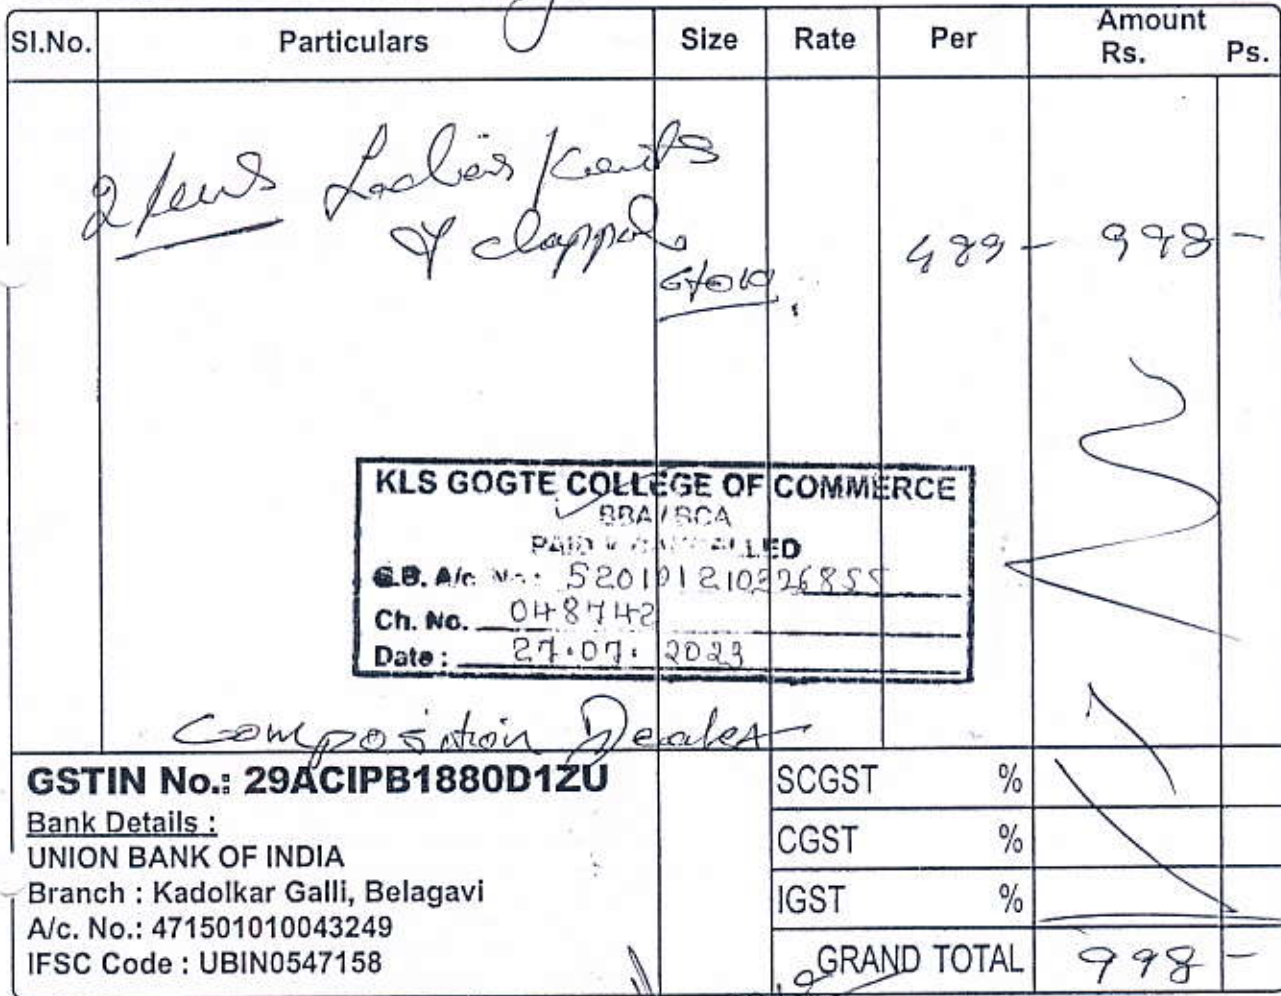 Sl.No. Particulars Size Rate Per Amount Rs. Ps.
2 Ladies
489 - 998 -
KLS GOGTE COLLEGE OF COMMERCE
BBA / BCA
PAID
S.B. A/c. No.: 520101210326855
Ch. No. 048742
Date : 27.07.2023
Composition Dealer
GSTIN No.: 29ACIPB1880D1ZU
Bank Details :
UNION BANK OF INDIA
Branch : Kadolkar Galli, Belagavi
A/c. No.: 471501010043249
IFSC Code : UBIN0547158
SCGST %
CGST %
IGST %
GRAND TOTAL 998 -